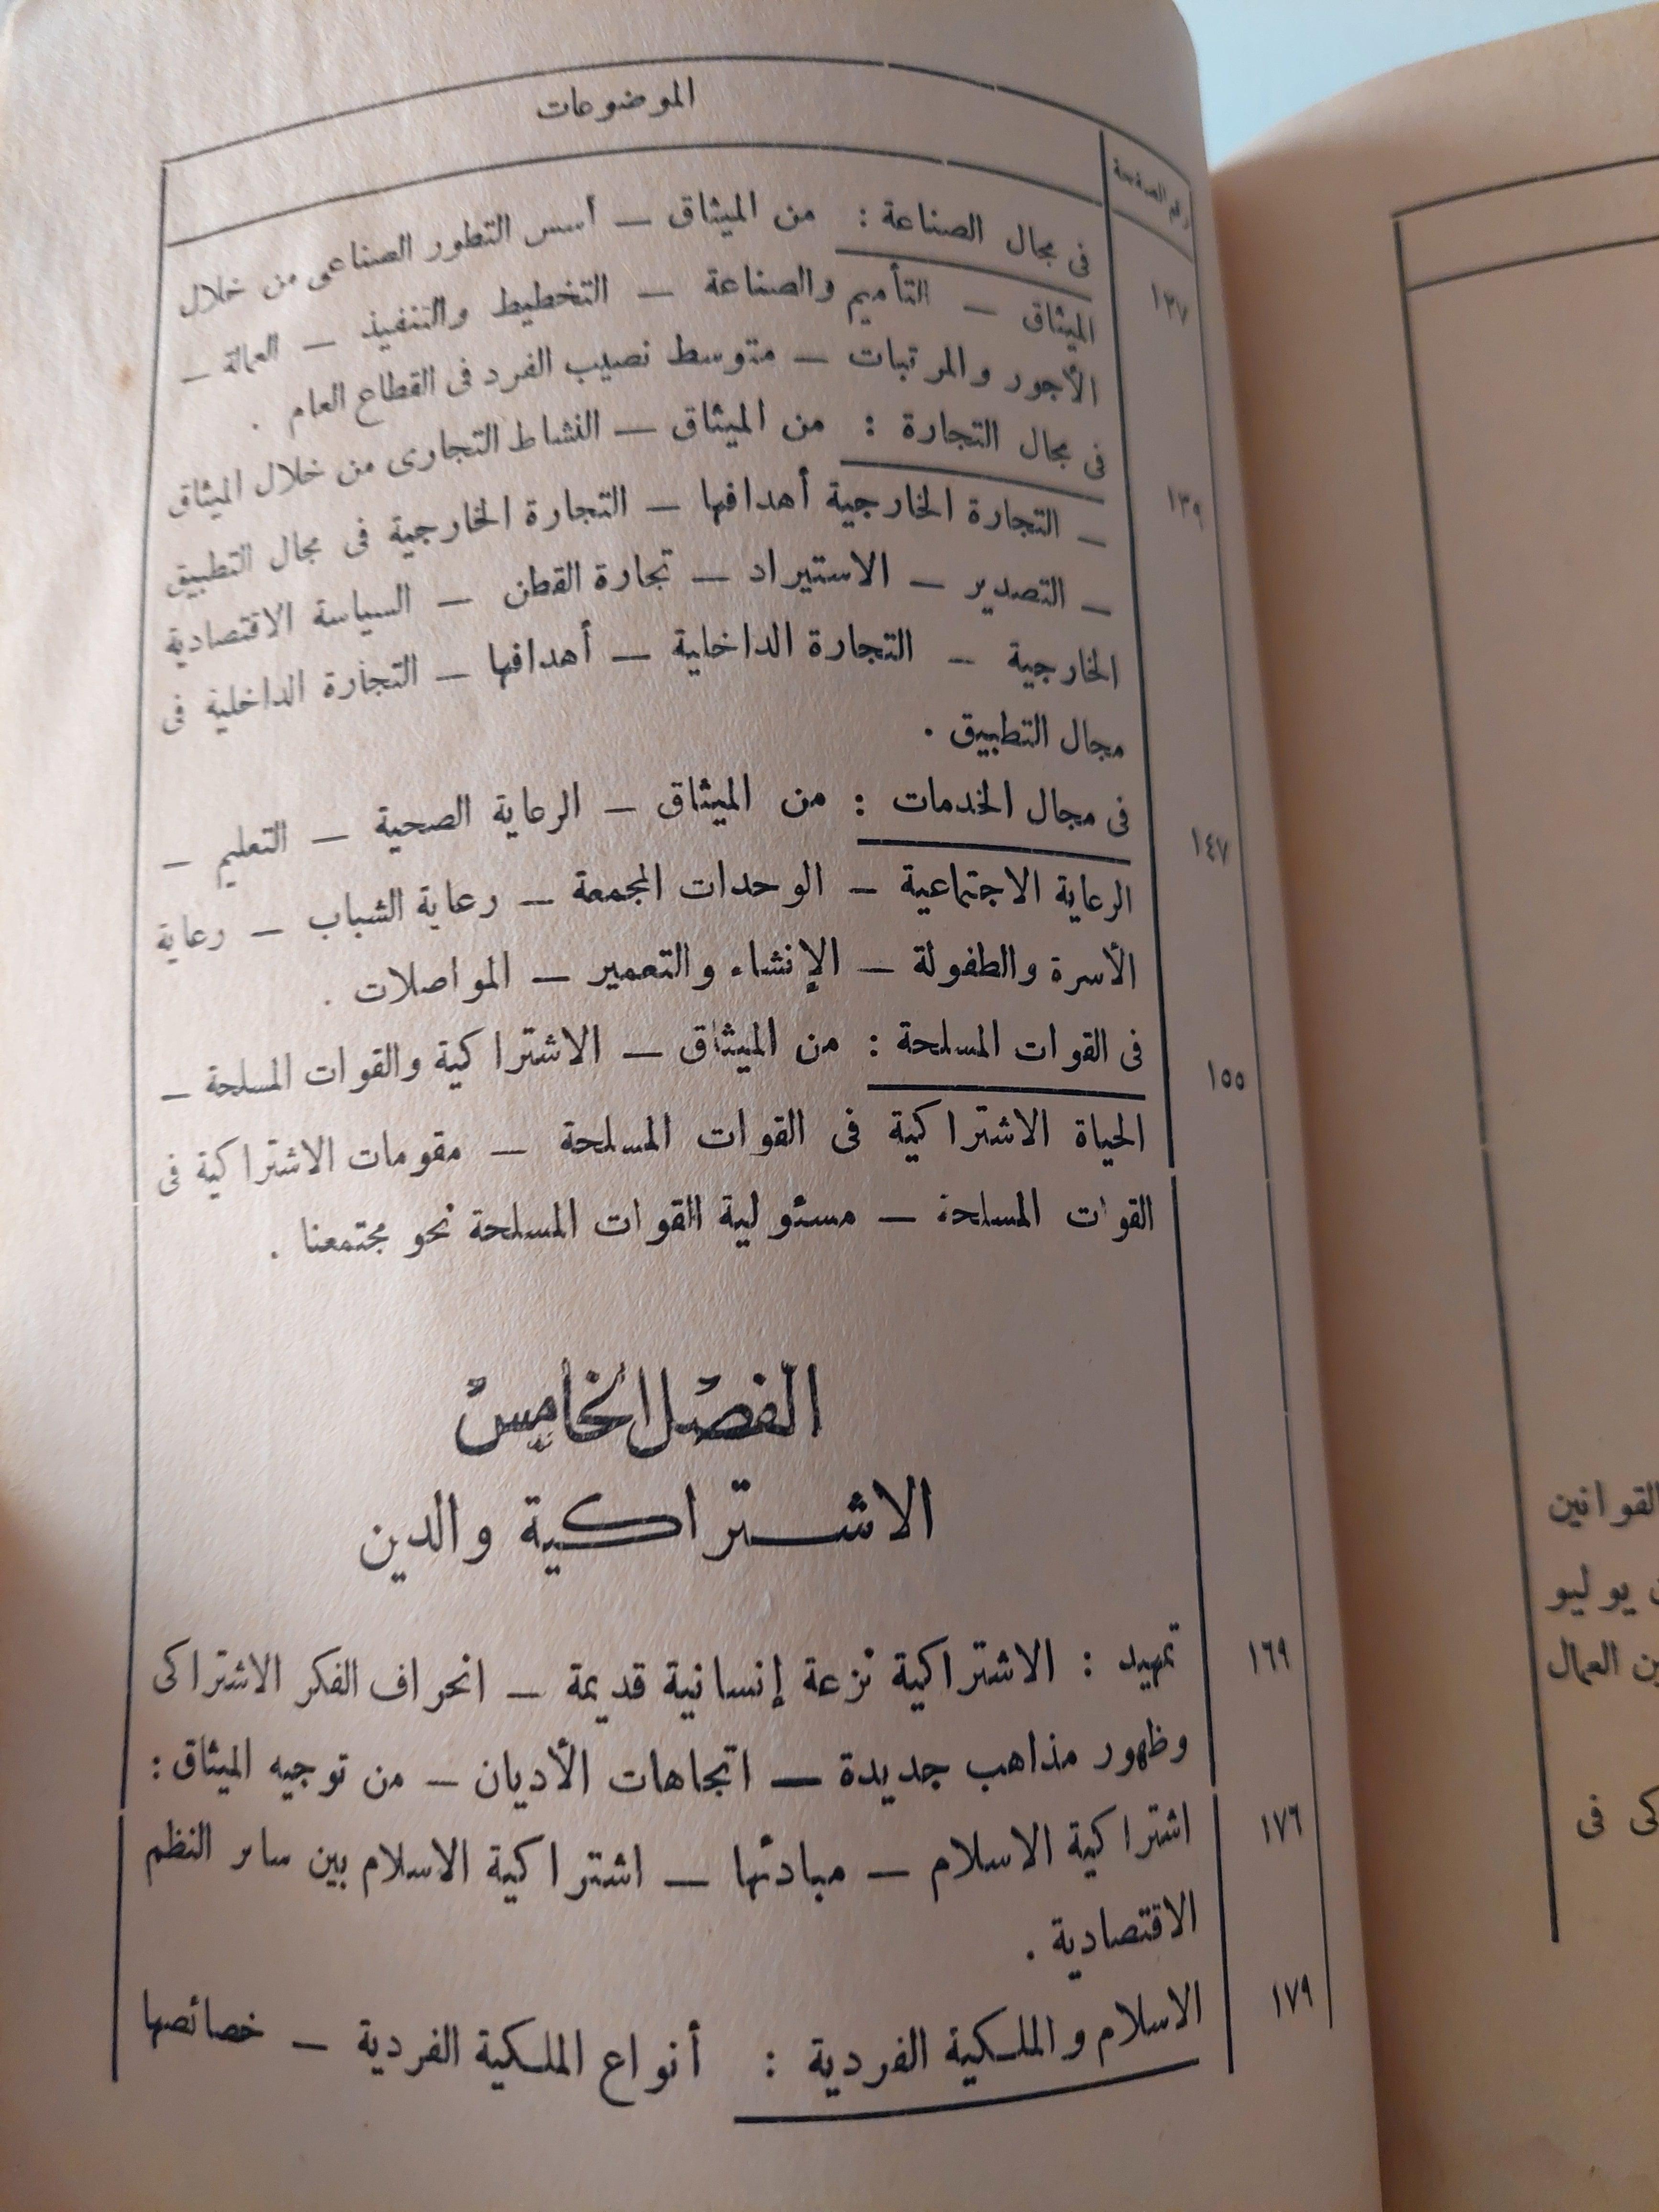 الموضوعات
رقم الصفحة
١٣٧ في مجال الصناعة : من الميثاق — أسس التطور الصناعى من خلال
الميثاق — التأميم والصناعة — التخطيط والتنفيذ — العمالة —
الأجور والمرتبات — متوسط نصيب الفرد فى القطاع العام .
١٣٩ فى مجال التجارة : من الميثاق — النشاط التجارى من خلال الميثاق
— التجارة الخارجية أهدافها — التجارة الخارجية فى مجال التطبيق
— التصدير — الاستيراد — تجارة القطن — السياسة الاقتصادية
الخارجية — التجارة الداخلية — أهدافها — التجارة الداخلية فى
مجال التطبيق .
١٤٧ فى مجال الخدمات : من الميثاق — الرعاية الصحية — التعليم —
الرعاية الاجتماعية — الوحدات المجمعة — رعاية الشباب — رعاية
الأسرة والطفولة — الإنشاء والتعمير — المواصلات .
١٥٥ فى القوات المسلحة : من الميثاق — الاشتراكية والقوات المسلحة —
الحياة الاشتراكية فى القوات المسلحة — مقومات الاشتراكية فى
القوات المسلحة — مسئولية القوات المسلحة نحو مجتمعنا .
الفصل الخامس
الاشتراكية والدين
١٦٩ تمهيد : الاشتراكية نزعة إنسانية قديمة — انحراف الفكر الاشتراكى
وظهور مذاهب جديدة — اتجاهات الأديان — من توجيه الميثاق :
١٧٦ اشتراكية الاسلام — مبادئها — اشتراكية الاسلام بين سائر النظم
الاقتصادية .
١٧٩ الاسلام والملكية الفردية : أنواع الملكية الفردية — خصائصها
القوانين
يوليو
العمال
فى